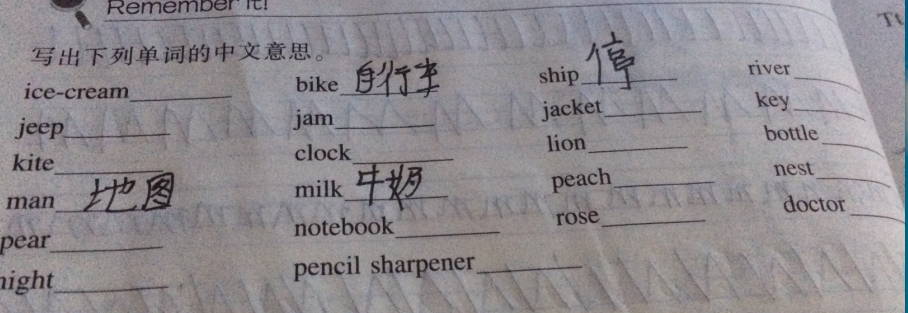 Remember it!
写出下列单词的中文意思。
ice-cream________ bike 自行车 ship 停 river________
jeep________ jam________ jacket________ key________
kite________ clock________ lion________ bottle________
man 地图 milk 牛奶 peach________ nest________
pear________ notebook________ rose________ doctor________
night________ pencil sharpener________